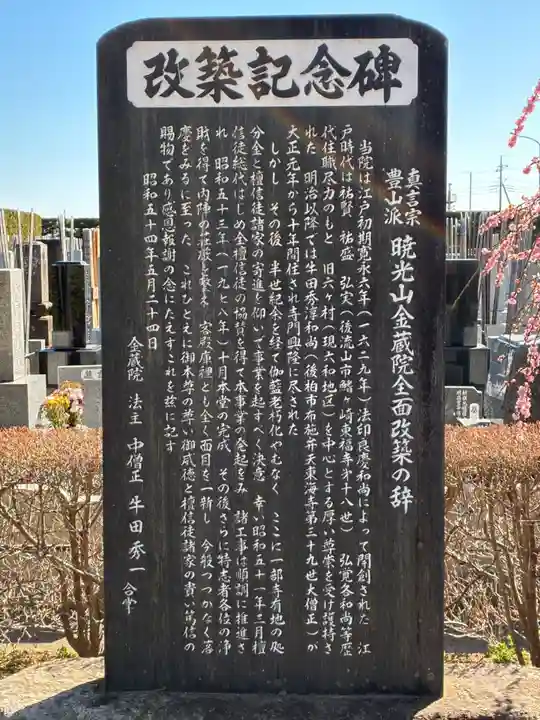 改築記念碑
真言宗
豊山派 暁光山金蔵院全面改築の辞
当院は江戸初期寛永六年(一六二九年)法印良慶和尚によって開創された 江
戸時代は祐賢 祐盛 弘実(後流山市鰭ヶ崎東福寺才十八世) 弘寛各和尚等歴
代住職尽力のもと 旧六ヶ村(現六和地区)を中心とする厚い尊崇を受け護持さ
れた 明治以降では牛田秀淳和尚(後柏市布施弁天東海寺第三十九世大僧正)が
大正元年から十年間住され寺門興隆に尽された
しかし その後 半世紀余を経て伽藍老朽化やむなく ここに一部寺有地の処
分金と檀信徒諸家の寄進を仰いで事業を起すべく決意 幸い昭和五十一年三月檀
信徒総代はじめ全檀信徒の協賛を得て本事業の発起をみ 諸工事は順調に推進さ
れ 昭和五十三年(一九七八年)十月本堂の完成 その後さらに特志者各位の浄
財を得て内陣の荘厳も整え 客殿庫裡とも全く面目を一新し 今般つつがなく落
慶をみるに至った これひとえに御本尊の尊い御威徳と檀信徒諸家の貴い篤信の
賜物であり感恩報謝の念にたえずこれを茲に記す
昭和五十四年五月二十四日
金蔵院 法主 中僧正 牛田秀一 合掌